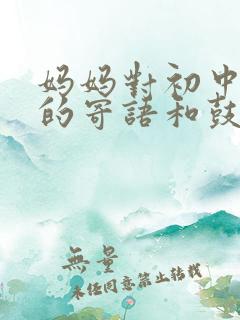 妈妈對初中
的寄語和鼓
無量
未经同意禁止转载